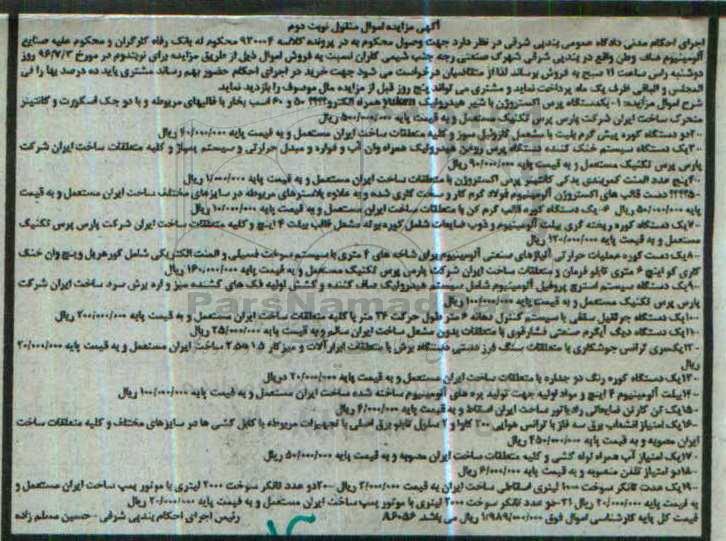 آگهی مزایده اموال منقول نوبت دوم
اجرای احکام مدنی دادگاه عمومی بندپی شرقی در نظر دارد جهت وصول محکوم به در پرونده کلاسه ۹۳۰۰۰۴ محکوم له بانک رفاه کارگران و محکوم علیه صنایع
آلومینیوم صاف وطن واقع در بندپی شرقی شهرک صنعتی رجه جنب شیمی کاران نسبت به فروش اموال ذیل از طریق مزایده برای نوبتدوم در مورخ ۹۶/۷/۳ روز
دوشنبه راس ساعت ۱۱ صبح به فروش برساند لذا از متقاضیان درخواست می شود جهت خرید در اجرای احکام حضور بهم رساند مشتری باید ده درصد بها را فی
المجلس و الباقی ظرف یک ماه پرداخت نماید و مشتری می تواند پنج روز قبل از مزایده مال موصوف را بازدید نماید
شرح اموال مزایده: ۱- یکدستگاه پرس اکستروژن با شیر هیدرولیک yuken همراه الکترو ۵۰ و ۶۰ اسب بخار با قالبهای مربوطه و با دو جک اسکورت و کانتینر
متحرک ساخت ایران شرکت پارس پرس تکنیک مستعمل و به قیمت پایه ۵۰۰/۰۰۰/۰۰۰ ریال
۲-دو دستگاه کوره پیش گرم بلیت با مشعل گازوئیل سوز و کلیه متعلقات ساخت ایران مستعمل و به قیمت پایه ۶۰/۰۰۰/۰۰۰ ریال
۳-یک دستگاه سیستم خنک کننده دستگاه پرس روغن هیدرولیک همراه وان آب و فواره و مبدل حرارتی و سیستم پمپاژ و کلیه متعلقات ساخت ایران شرکت
پارس پرس تکنیک مستعمل و به قیمت پایه ۹۰/۰۰۰/۰۰۰ ریال
۴-پنج عدد المنت کمربندی یدکی کانتینر پرس اکستروژن با متعلقات ساخت ایران مستعمل و به قیمت پایه ریال
دست قالب های اکستروژن آلومینیوم فولاد گرم کار و سخت کاری شده و به علاوه بلاسترهای مربوطه در سایزهای مختلف ساخت ایران مستعمل و به قیمت
پایه ۵۰/۰۰۰/۰۰۰ ریال ۶-یک دستگاه کوره قالب گرم کن با متعلقات ساخت ایران مستعمل و به قیمت پایه ۱۰/۰۰۰/۰۰۰ ریال
۷-یک دستگاه کوره ریخته گری بیلت آلومینیوم و ذوب ضایعات شامل کوره بوته مشعل قالب بیلت ۴ اینچ و کلیه متعلقات ساخت ایران شرکت پارس پرس تکنیک
مستعمل و به قیمت پایه ۱۲۰/۰۰۰/۰۰۰ ریال
۸-یک دست کوره عملیات حرارتی آلیاژهای صنعتی آلومینیوم برای شاخه های ۶ متری با سیستم سوخت فسیلی و المنت الکتریکی شامل کوره ریل و پنج وان خنک
کاری کو اینچ ۶ متری تابلو فرمان و متعلقات ساخت ایران شرکت پارس پرس تکنیک مستعمل و به قیمت پایه ۱۶۰/۰۰۰/۰۰۰ ریال
۹-یک دستگاه سیستم استرچ پروفیل آلومینیوم شامل سیستم هیدرولیک صاف کننده و کشش اولیه فک های کشنده میز و اره برش سرد ساخت ایران شرکت
پارس پرس تکنیک مستعمل و به قیمت پایه ۱۰۰/۰۰۰/۰۰۰ ریال
۱۰-یک دستگاه جرثقیل سقفی با سیستم کنترل دهانه ۶ متر طول حرکت ۲۴ متر با کلیه متعلقات ساخت ایران مستعمل و به قیمت پایه ۲۰۰/۰۰۰/۰۰۰ ریال
۱۱-یک دستگاه دیگ آبگرم صنعتی فشارقوی با متعلقات بدون مشعل ساخت ایران سالم و به قیمت پایه ۲۵/۰۰۰/۰۰۰ ریال
۱۲-یکسری ترانس جوشکاری با متعلقات سنگ فرز دستی دستگاه برش با متعلقات ابزارآلات و میزکار ۱.۵ ۲.۵ ساخت ایران مستعمل و به قیمت پایه ۲۰/۰۰۰/۰۰۰
ریال
۱۳-یک دستگاه کوره رنگ دو جداره با متعلقات ساخت ایران مستعمل و به قیمت پایه ۲۰/۰۰۰/۰۰۰ ریال
۱۴-بیلت آلومینیوم ۴ اینچ و مواد اولیه جهت تولید پره های آلومینیوم ساخته شده ساخت ایران مستعمل و به قیمت پایه ۱۰۰/۰۰۰/۰۰۰ ریال
۱۵-یک تن کارتن ضایعاتی رادیاتور ساخت ایران اسقاط و به قیمت پایه ۶/۰۰۰/۰۰۰ ریال
۱۶-یک امتیاز انشعاب برق سه فاز با ترانس هوایی ۲۰۰ کاوا و ۲ سلول تابلو برق اصلی با تجهیزات مربوطه با کابل کشی ها در سایزهای مختلف و کلیه متعلقات ساخت
ایران منصوبه و به قیمت پایه ۲۵۰/۰۰۰/۰۰۰ ریال
۱۷-یک امتیاز آب همراه لوله کشی و کلیه متعلقات ساخت ایران منصوبه و به قیمت پایه ۵۰/۰۰۰/۰۰۰ ریال
۱۸-دو امتیاز تلفن منصوبه و به قیمت پایه ۶/۰۰۰/۰۰۰ ریال
۱۹-یک عدد تانکر سوخت ۱۰۰۰ لیتری اسقاطی ساخت ایران به قیمت ۲/۰۰۰/۰۰۰ ریال ۲۰-دو عدد تانکر سوخت ۲۰۰۰ لیتری با موتور پمپ ساخت ایران مستعمل و
به قیمت پایه ۲۰/۰۰۰/۰۰۰ ریال ۲۱-دو عدد تانکر سوخت ۲۰۰۰ لیتری با موتور پمپ ساخت ایران مستعمل و به قیمت پایه ۲۰/۰۰۰/۰۰۰ ریال
قیمت کل پایه کارشناسی اموال فوق ۱/۹۸۹/۰۰۰/۰۰۰ ریال می باشد. ۸۶۰۵۶ رئیس اجرای احکام بندپی شرقی - حسین مسلم زاده
ParsNamad